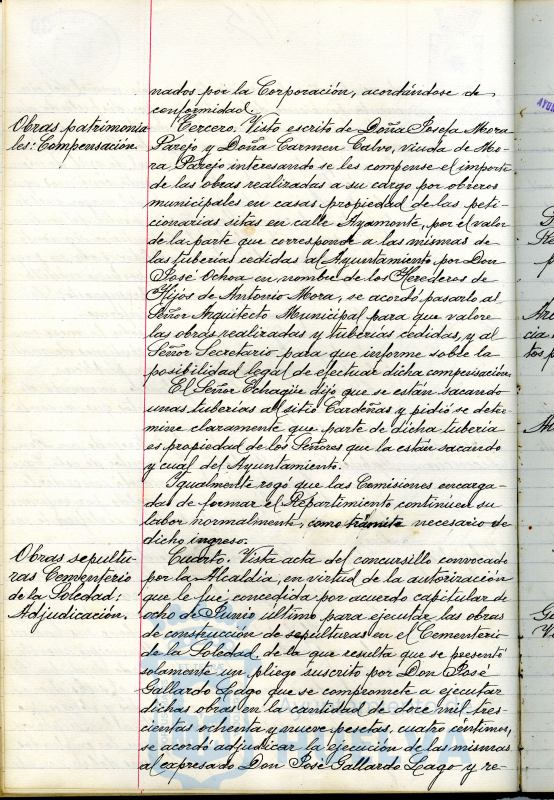 nados por la Corporación, acordándose de
conformidad.
Obras patrimonia
les: Compensación
Tercero. Visto escrito de Doña Josefa Mora
Parejo y Doña Carmen Calvo, viuda de Mo-
ra Parejo interesando se les compense el importe
de las obras realizadas a su cargo por obreros
municipales en casas propiedad de las peti-
cionarias sitas en calle Ayamonte, por el valor
de la parte que corresponde a las mismas de
las tuberias cedidas al Ayuntamiento por Don
José Ochoa en nombre de los Herederos de
Hijos de Antonio Mora, se acordó pasarlo al
Señor Arquitecto Municipal para que valore
las obras realizadas y tuberías cedidas, y al
Señor Secretario para que informe sobre la
posibilidad legal de efectuar dicha compensación.
El Señor Echagüe dijo que se están sacando
unas tuberias al sitio Cardeñas y pidió se deter-
mine claramente que parte de dicha tuberia
es propiedad de los Señores que la están sacando
y cual del Ayuntamiento.
Igualmente rogó que las Comisiones encarga-
das de formar el Repartimiento continúen su
labor normalmente, como trámite necesario de
dicho ingreso.
Obras sepultu-
ras Cementerio
de la Soledad:
Adjudicación.
Cuarto. Vista acta del concursillo convocado
por la Alcaldia, en virtud de la autorización
que le fué concedida por acuerdo capitular de
ocho de Junio último para ejecutar las obras
de construcción de sepulturas en el Cementerio
de la Soledad, de la que resulta que se presentó
solamente un pliego suscrito por Don José
Gallardo Lago que se compromete a ejecutar
dichas obras en la cantidad de doce mil tres-
cientas ochenta y nueve pesetas, cuatro céntimos,
se acordó adjudicar la ejecución de las mismas
al expresado Don José Gallardo Lago y re-